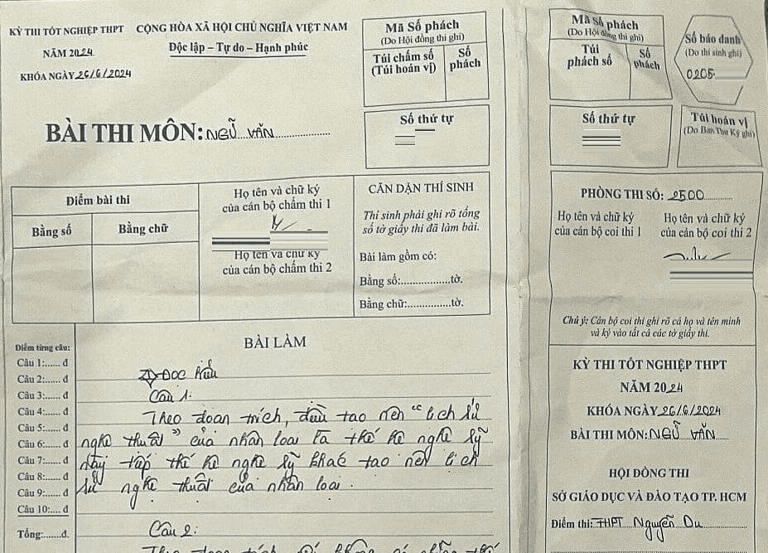 KỲ THI TỐT NGHIỆP THPT
NĂM 2024
KHÓA NGÀY 26/6/2024
CỘNG HÒA XÃ HỘI CHỦ NGHĨA VIỆT NAM
Độc lập – Tự do – Hạnh phúc
BÀI THI MÔN: NGỮ VĂN
Mã Số phách
(Do Hội đồng thi ghi)
Túi chấm số
(Túi hoán vị)
Số
phách
Số thứ tự
Điểm bài thi
Bằng số
Bằng chữ
Họ tên và chữ ký
của cán bộ chấm thi 1
Họ tên và chữ ký
của cán bộ chấm thi 2
CĂN DẶN THÍ SINH
Thí sinh phải ghi rõ tổng
số tờ giấy thi đã làm bài.
Bài làm gồm có:
Bằng số:..................tờ.
Bằng chữ:................tờ.
Điểm từng câu:
Câu 1:...... đ
Câu 2:...... đ
Câu 3:...... đ
Câu 4:...... đ
Câu 5:...... đ
Câu 6:...... đ
Câu 7:...... đ
Câu 8:...... đ
Câu 9:...... đ
Câu 10:..... đ
Tổng:.......đ.
BÀI LÀM
I, ĐỌC hiểu
Câu 1:
Theo đoạn trích, điều tạo nên "lịch sử
nghệ thuật" của nhân loại là thế hệ nghệ sỹ
này tiếp thế hệ nghệ sỹ khác tạo nên lịch
sử nghệ thuật của nhân loại.
Câu 2:
Theo đoạn trích
Mã Số phách
(Do Hội đồng thi ghi)
Túi
phách số
Số
phách
Số báo danh
(Do thí sinh ghi)
0205
Số thứ tự
Túi hoán vị
(Do Ban Thư Ký ghi)
PHÒNG THI SỐ: 2500
Họ tên và chữ ký
của cán bộ coi thi 1
Họ tên và chữ ký
của cán bộ coi thi 2
Chú ý: Cán bộ coi thi ghi rõ cả họ và tên mình
và ký vào tất cả các tờ giấy thi.
KỲ THI TỐT NGHIỆP THPT
NĂM 2024
KHÓA NGÀY 26/6/2024
BÀI THI MÔN: NGỮ VĂN
HỘI ĐỒNG THI
SỞ GIÁO DỤC VÀ ĐÀO TẠO TP. HCM
Điểm thi: THPT Nguyễn Du